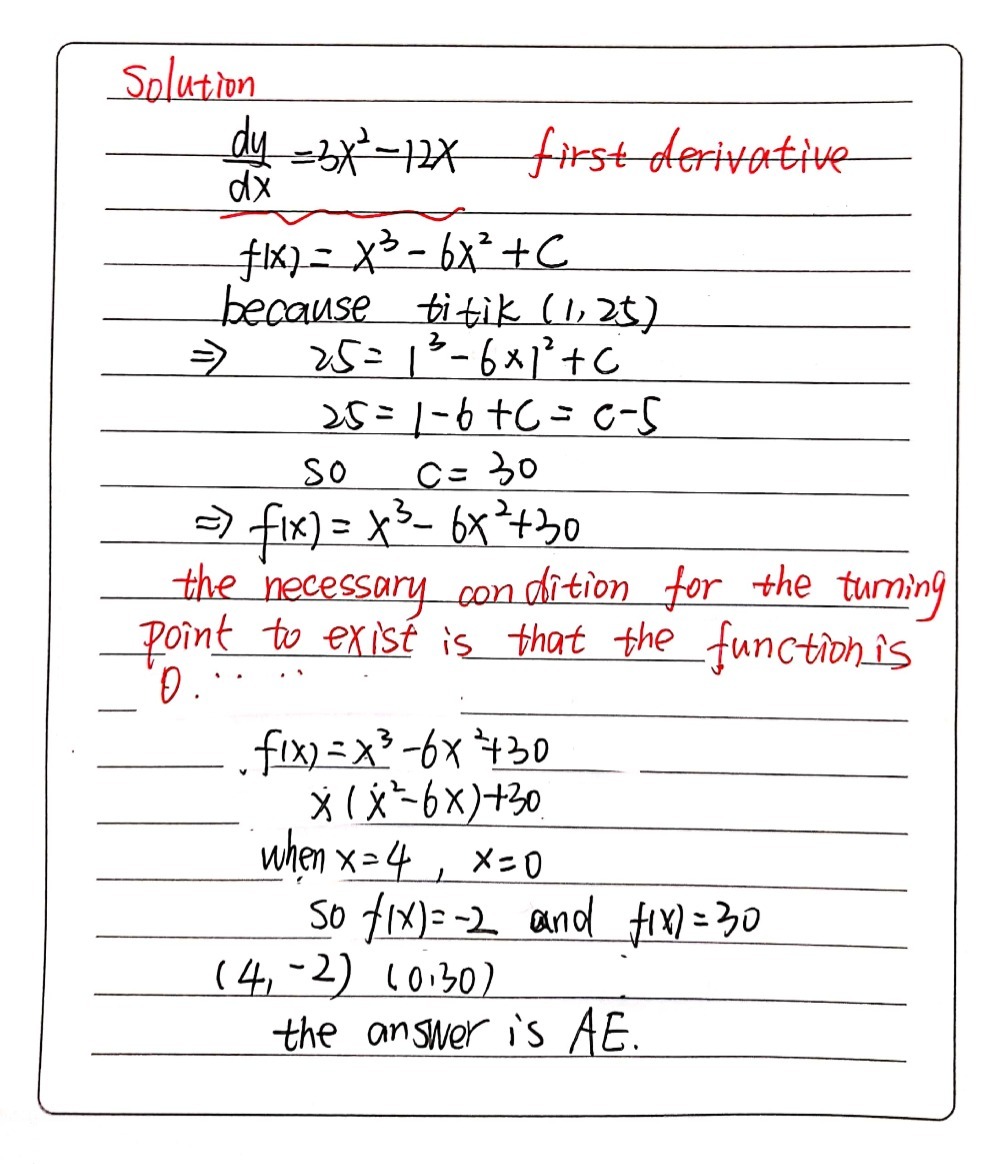 Solution
dy/dx = 3x² - 12x first derivative
f(x) = x³ - 6x² + C
because titik (1, 25)
⇒ 25 = 1³ - 6 × 1² + C
25 = 1 - 6 + C = C - 5
so C = 30
⇒ f(x) = x³ - 6x² + 30
the necessary condition for the turning
point to exist is that the function is
0.
f(x) = x³ - 6x² + 30
x (x² - 6x) + 30
when x = 4 , x = 0
so f(x) = -2 and f(x) = 30
(4, -2) (0,30)
the answer is AE.